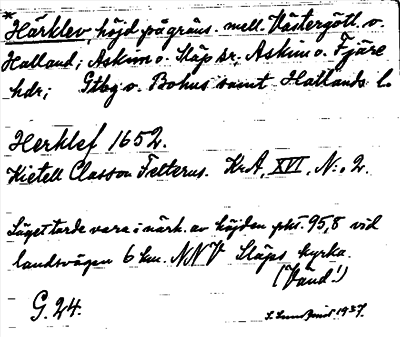 *
Härklev, höjd på gräns. mell. Västergötl. o.
Halland; Askim o. Släp sr, Askim o. Fjäre
hdr; Gtbg o. Bohus samt Hallands l.
Herklef 1652.
Kietell Classon Felterus. KrA, XVI, N:o 2.
Läget torde vara i närh. av höjden pkt. 95,8 vid
landsvägen 6 km. NNV Släps kyrka.
(Vänd!)
G. 24.
1937.